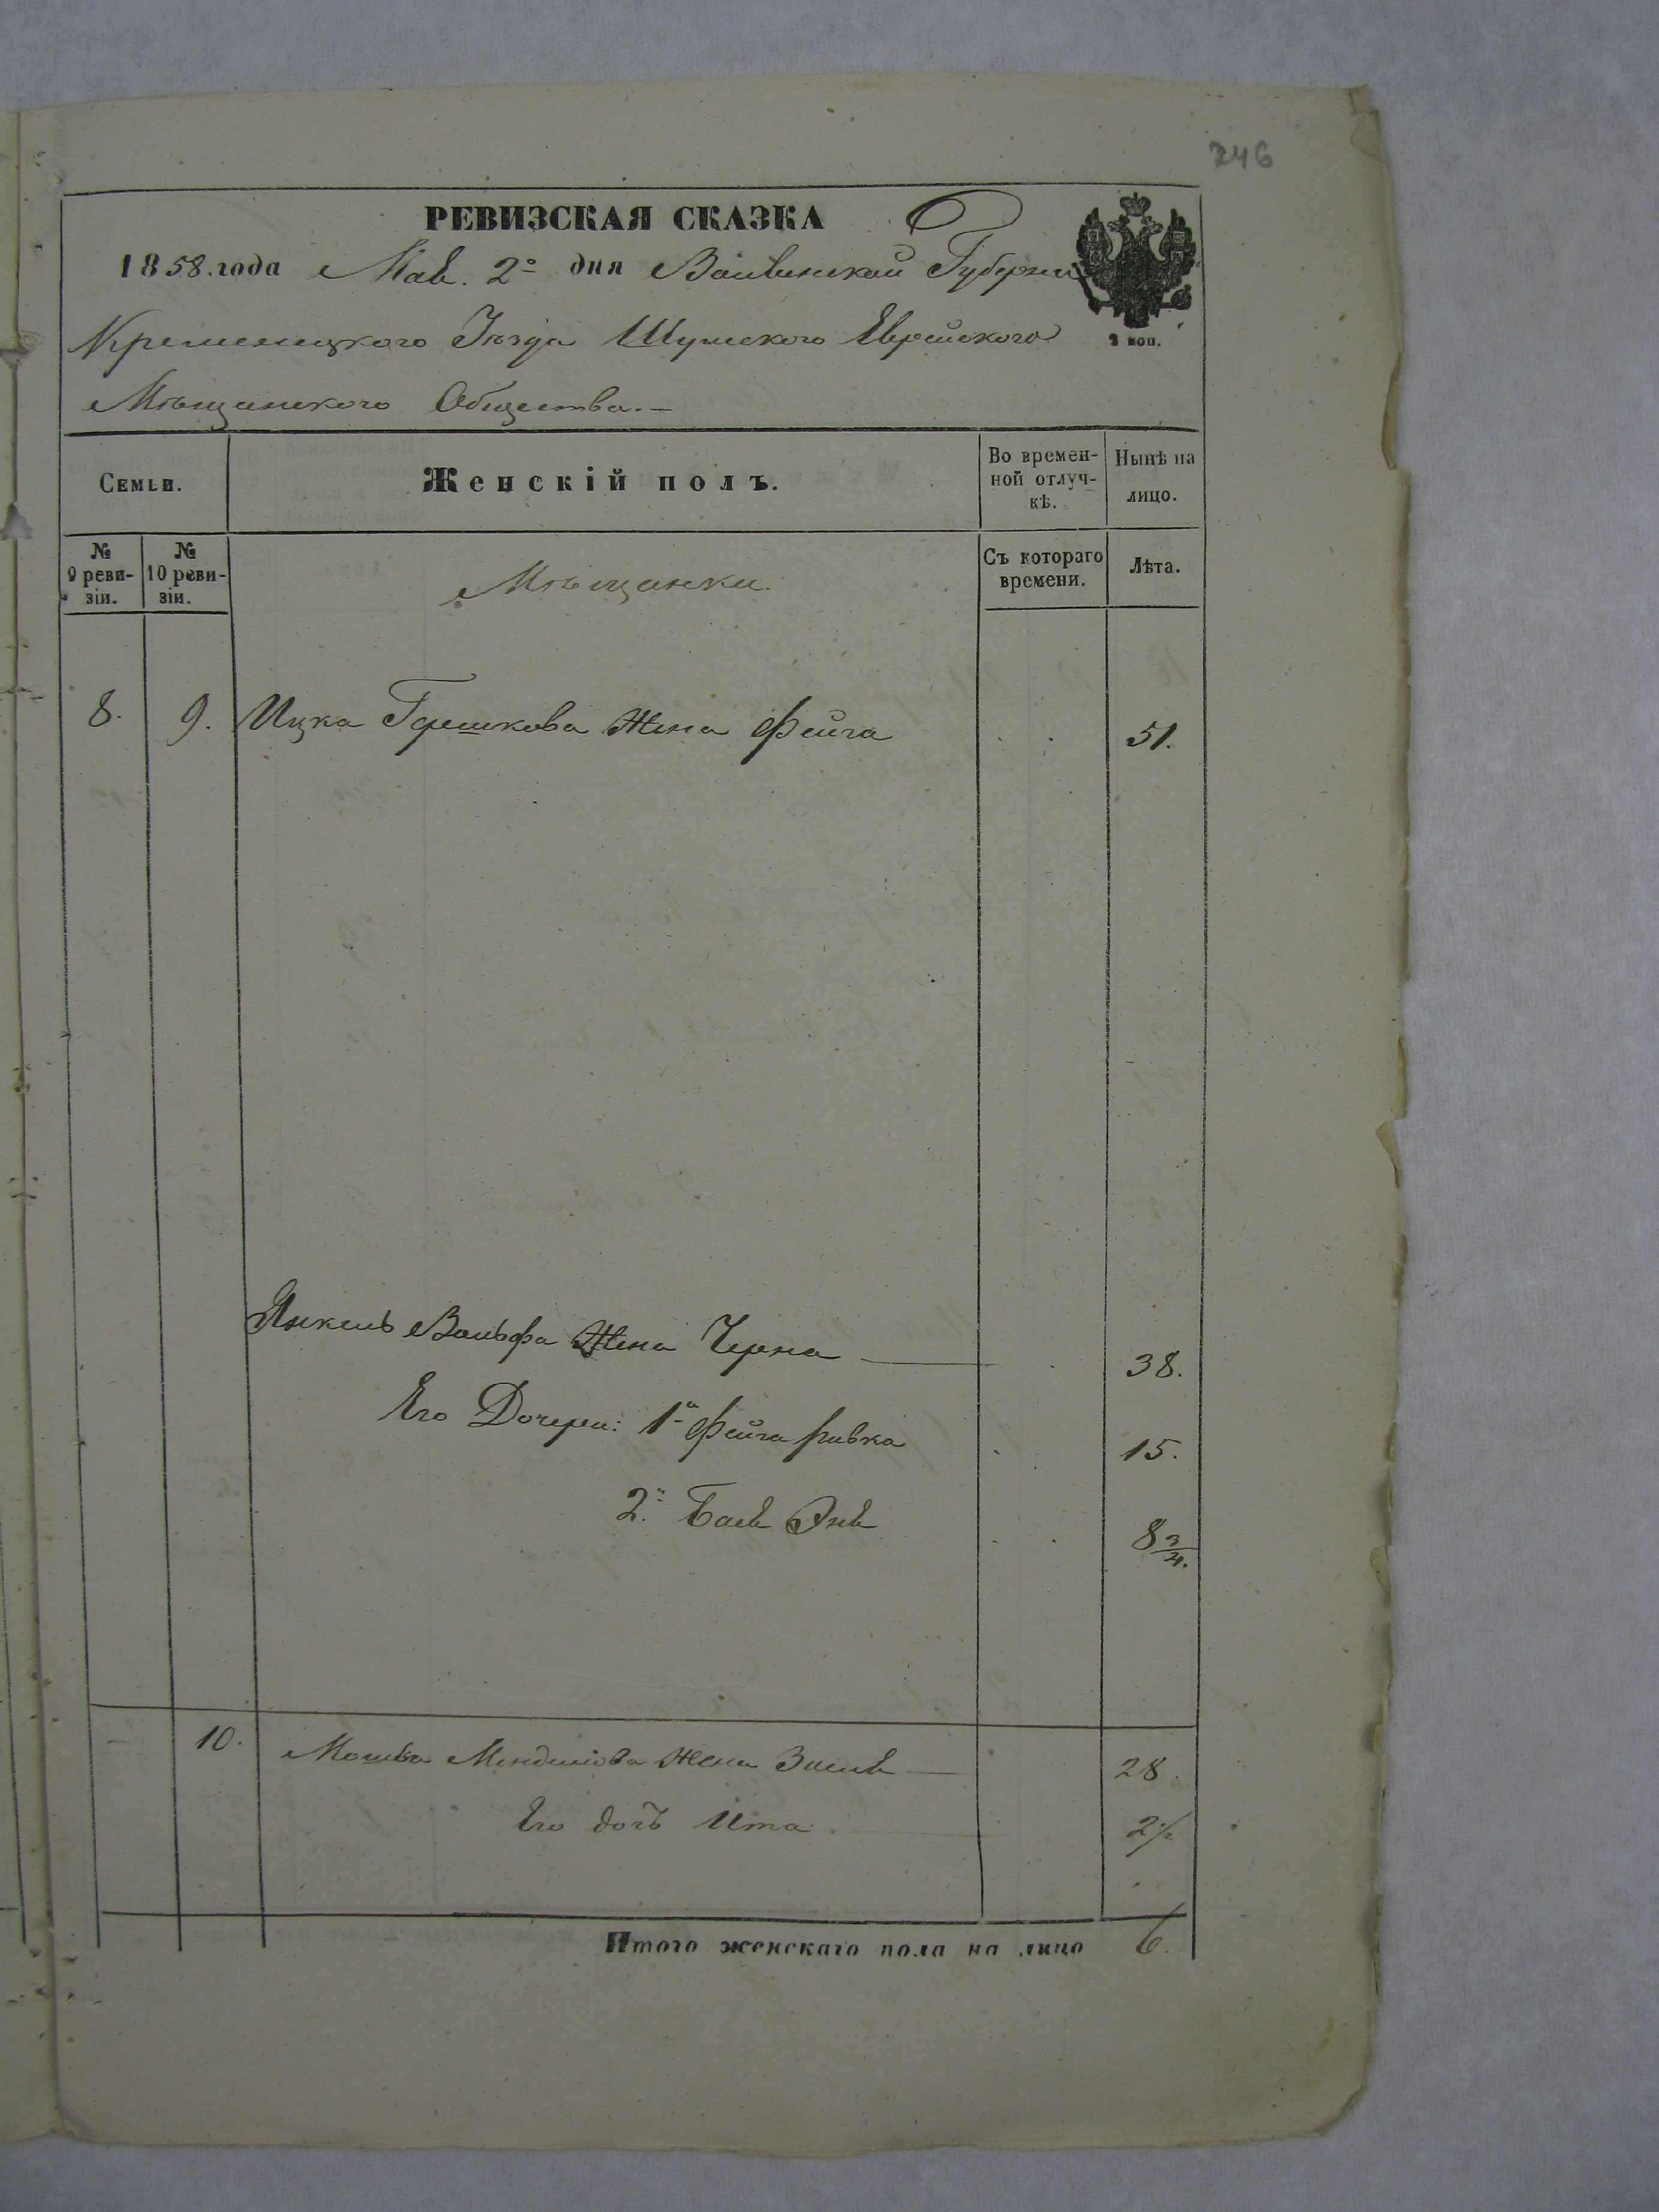 246
РЕВИЗСКАЯ СКАЗКА
1858. года Мая. 2го дня Волынской Губерни
2 коп.
Кременецкого Уѣзда Шумского Еврейского
Мѣщанского Общества.—
Семьи. Женскій полъ. Во времен-ной отлуч-кѣ. Нынѣ на лицо.
№ 9 реви-зіи. № 10 реви-зіи. Мѣщанки. Съ котораго времени. Лѣта.
8. 9. Ицка Гершкова Жена Фейга 51.
Янкель Вольфа Жена Черна 38.
Его Дочери: 1я Фейга Ривка 15.
2я Бася Эня 8 3/4.
10. Мошка Менделіова Жена Зисля 28.
Его дочь Ита 2 1/2
Итого женскаго пола на лицо 6.